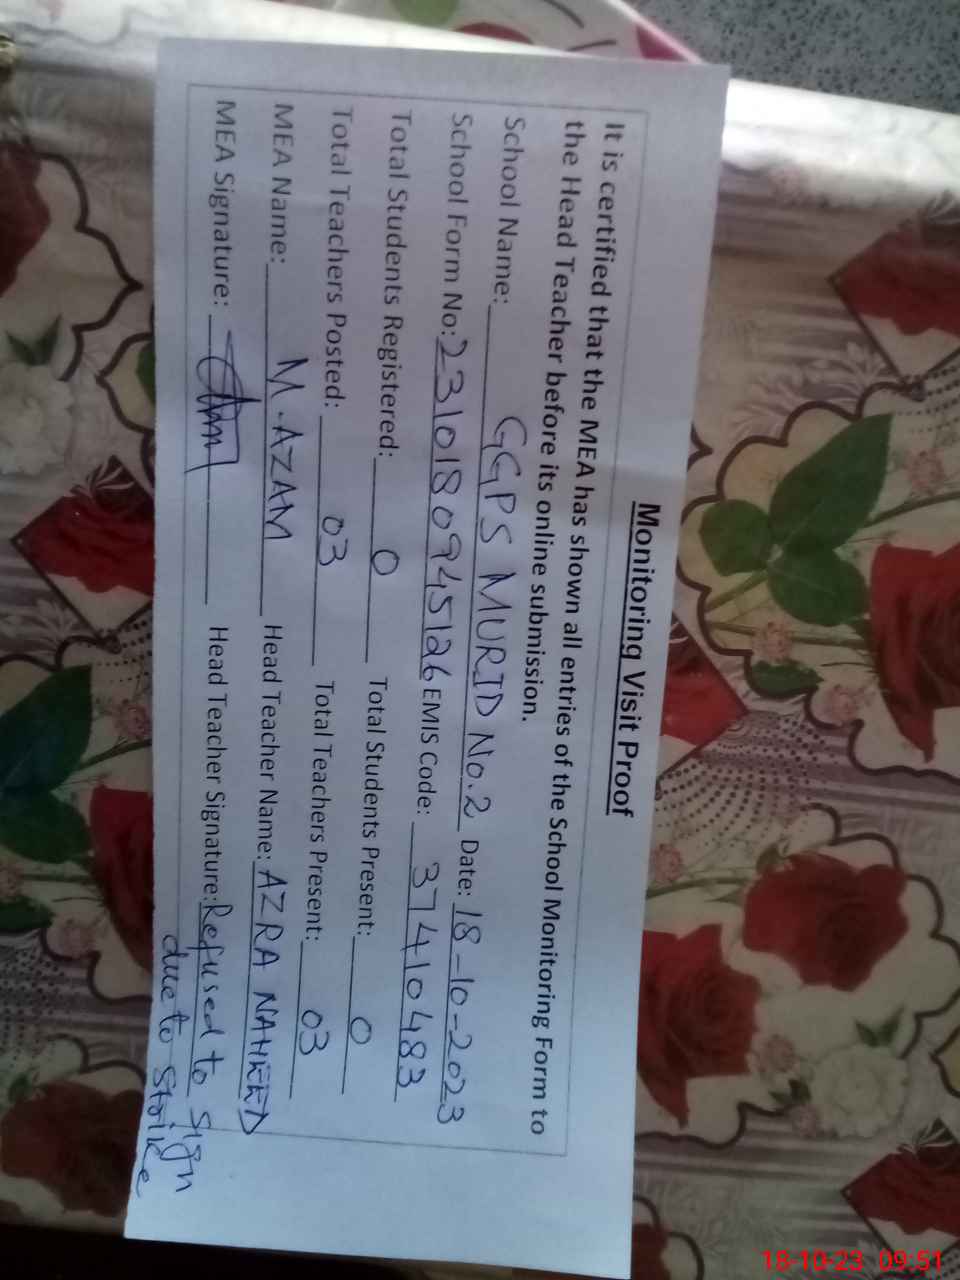 Monitoring Visit Proof
It is certified that the MEA has shown all entries of the School Monitoring Form to
the Head Teacher before its online submission.
School Name: GGPS MURID No.2 Date: 18-10-2023
School Form No: 2310180945126 EMIS Code: 37410483
Total Students Registered: 0 Total Students Present: 0
Total Teachers Posted: 03 Total Teachers Present: 03
MEA Name: M.AZAM Head Teacher Name: AZRA NAHEED
MEA Signature: Head Teacher Signature: Refused to sign
due to strike
18-10-23 09:51